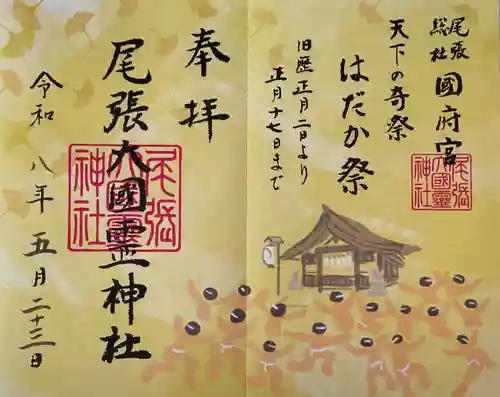 尾張
総社 國府宮
天下の奇祭
はだか祭
旧暦 正月二日より
正月十七日まで
奉拝
尾張大國霊神社
令和八年五月二十三日
尾張
大國霊
神社
尾張
大國霊
神社